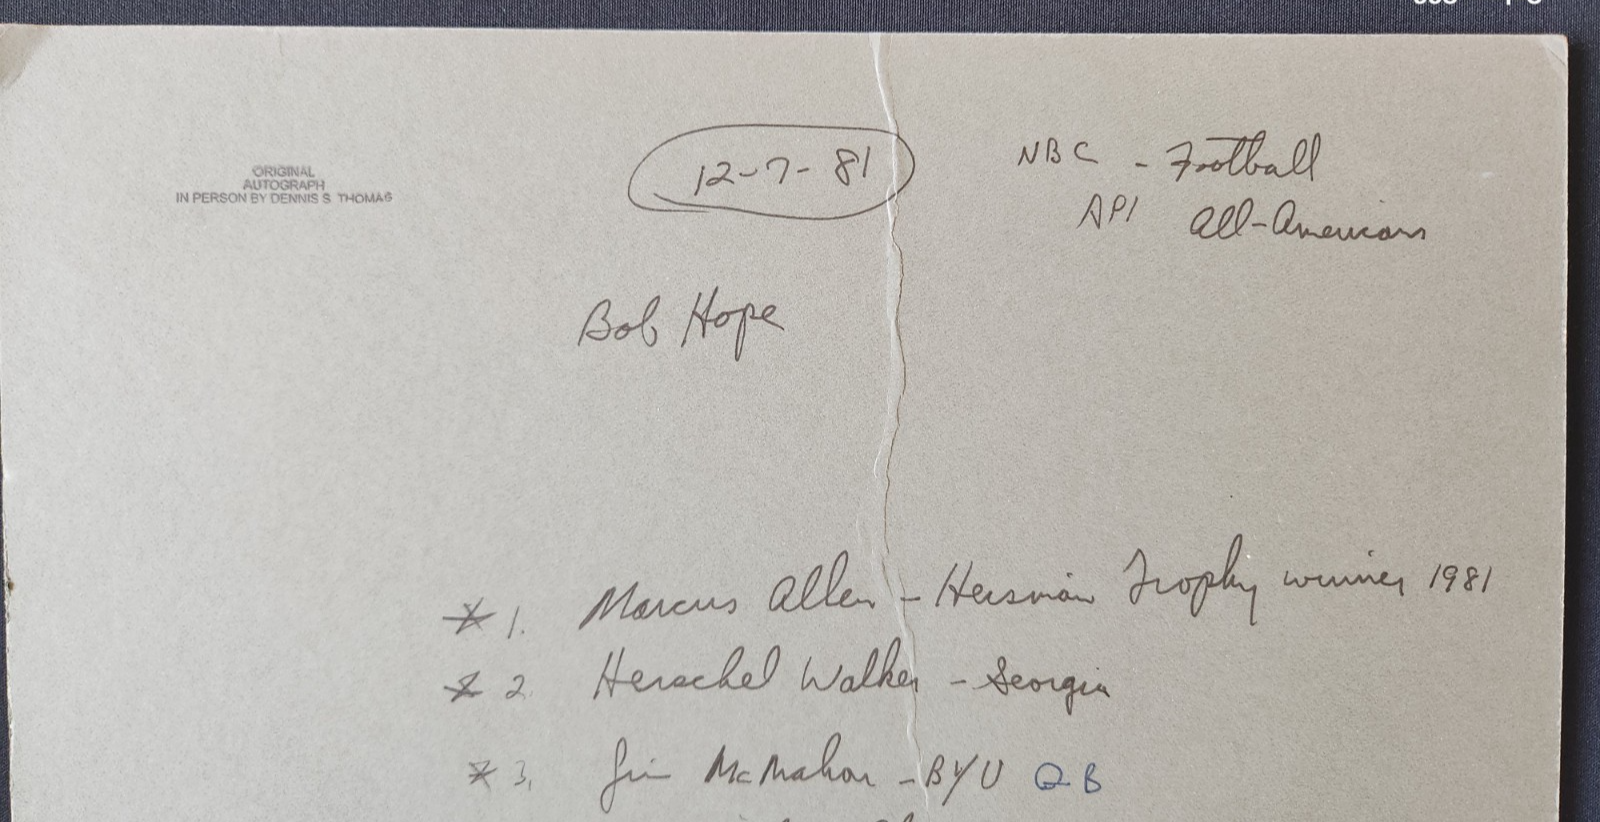 ORIGINAL
AUTOGRAPH
IN PERSON BY DENNIS S. THOMAS
12-7-81
NBC - Football
API All-Americans
Bob Hope
* 1. Marcus Allen - Heisman Trophy winner 1981
* 2. Herschel Walker - Georgia
* 3. Jim McMahon - BYU QB